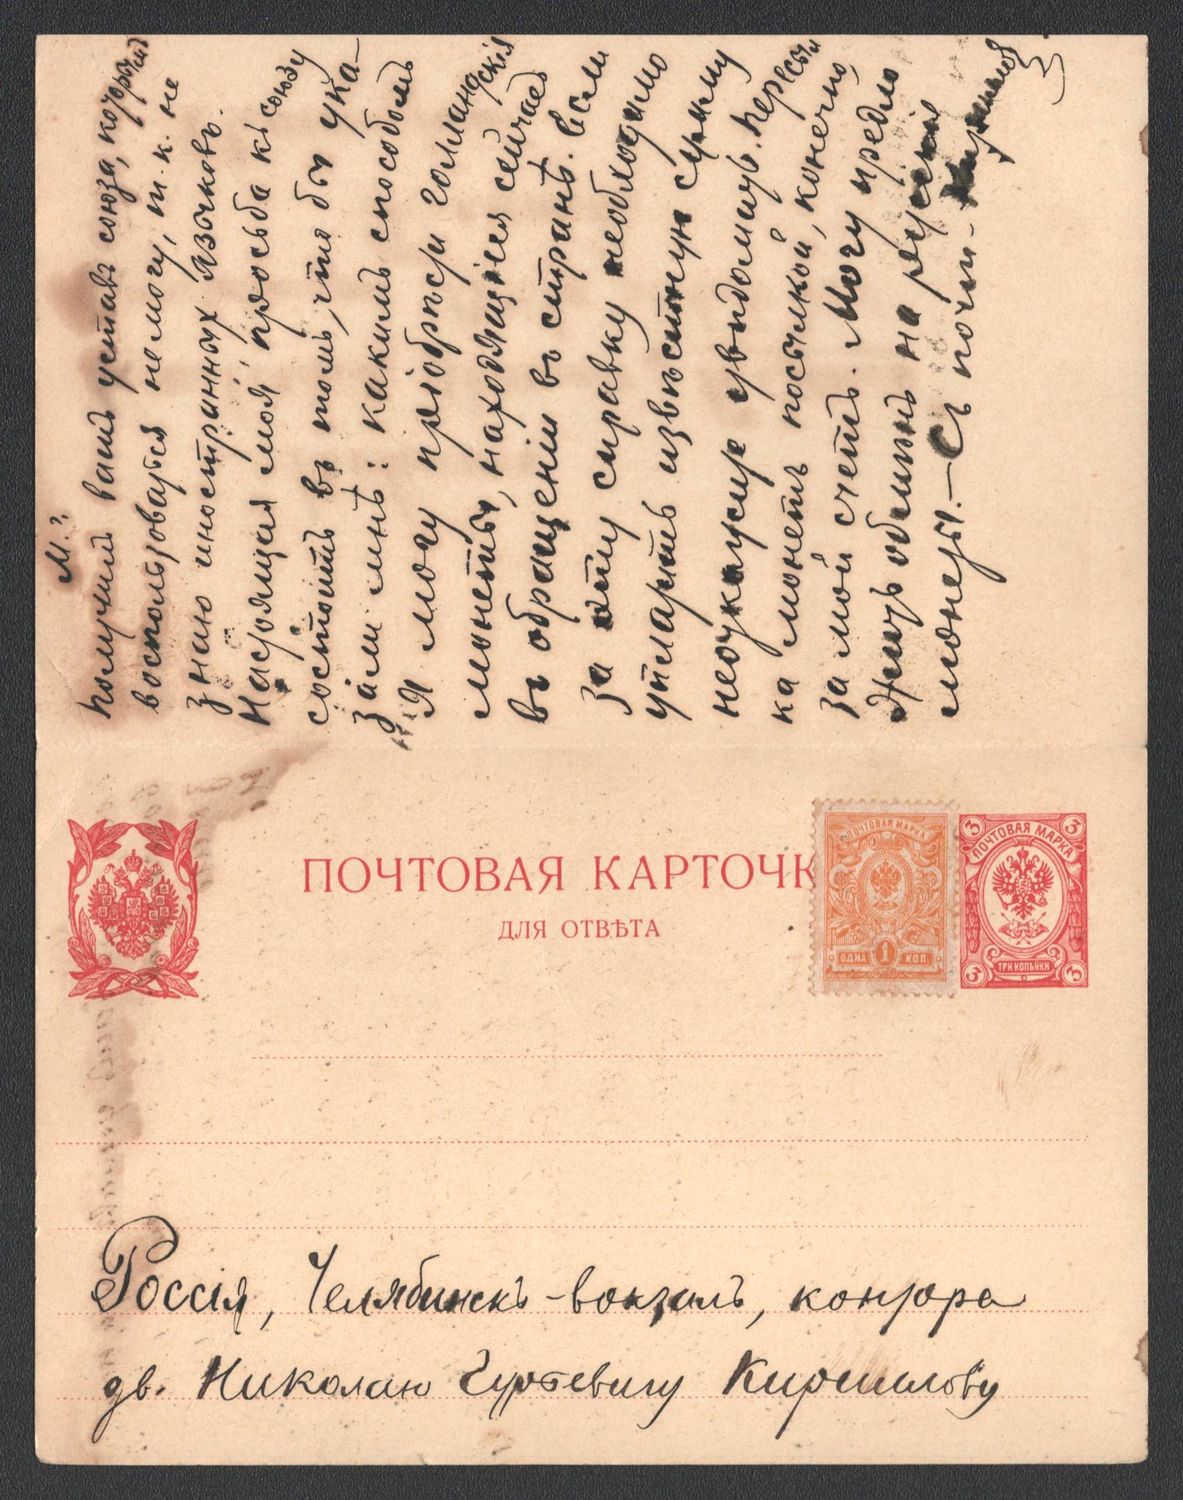 М. г.
Получилъ вашъ уставъ союза, которымъ
воспользоваться не могу, т.к. не
знаю иностранныхъ языковъ.
Настоящая моя просьба къ союзу
состоитъ въ томъ, что бы ука-
зали мнѣ: какимъ способомъ
я могу пріобрѣсти голландскія
монеты, находящіяся сейчасъ
въ обращеніи въ странѣ. Если
за эту справку необходимо
уплатить извѣстную сумму
неоткажите увѣдомить. Пересыл
ка монетъ посылкой, конечно,
за мой счетъ. Могу предло
жить обмѣнъ на русскія
монеты. — Съ почт.
ПОЧТОВАЯ КАРТОЧК
ДЛЯ ОТВѢТА
ПОЧТОВАЯ МАРКА
ОДНА 1 КОП.
3 3
ПОЧТОВАЯ МАРКА
ТРИ КОПѢЙКИ
3 3
Россія, Челябинскъ-вокзалъ, контора
дв. Николаю Кириллову